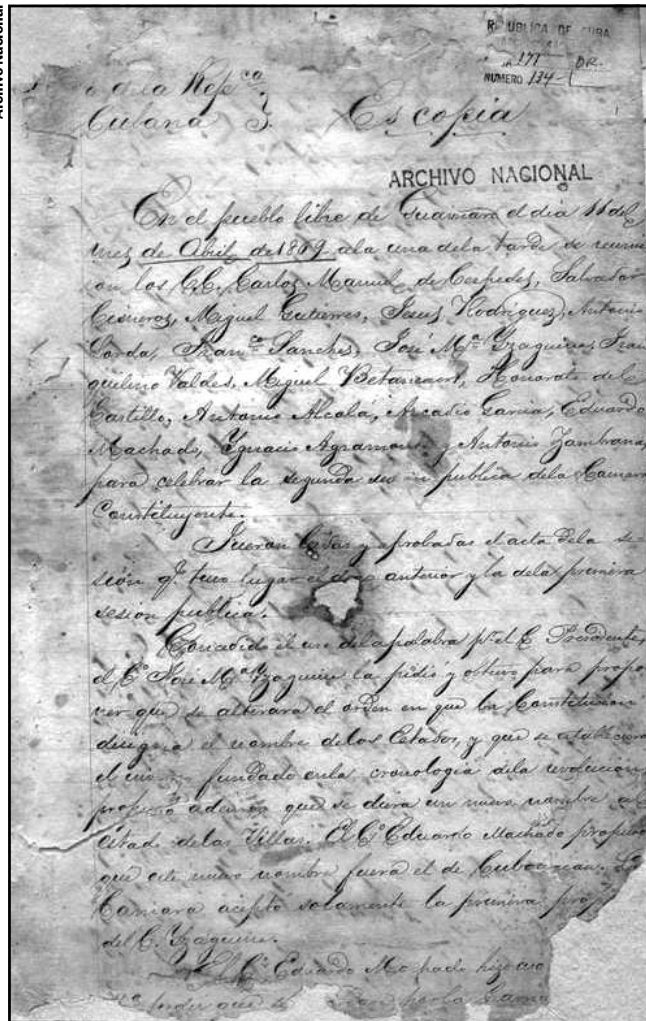 Archivo Nacional
REPUBLICA DE CUBA
177 OR.
NUMERO 134-
de la Repca
Cubana
Es copia
ARCHIVO NACIONAL
En el pueblo libre de Guaimaro el dia 11 del
mes de Abril de 1869 a la una de la tarde se reunie
ron los C.C. Carlos Manuel de Cespedes, Salvador
Cisneros, Miguel Gutierres, Jesus Rodriguez, Antonio
Lorda, Franco Sanches, José Ma Yzaguirre, Tran
quilino Valdes, Miguel Betancourt, Honorato del
Castillo, Antonio Alcalá, Arcadio Garcia, Eduardo
Machado, Ygnacio Agramonte y Antonio Zambrana,
para celebrar la segunda sesion publica de la Camara
Constituyente.
Fueron leidas y aprobadas el acta de la se-
sión q. tuvo lugar el dia anterior y la de la primera
sesion publica.
Concedido el uso de la palabra pr. el C. Presidente,
el Co José Ma Yzaguirre la pidió y obtuvo para propo
ner que se alterara el orden en que la Constitucion
designa el nombre de los Estados, y que se estableciera
el mismo fundado en la cronologia de la revolucion,
propuso ademas que se diera un nuevo nombre al
Estado de las Villas. El Co Eduardo Machado propuso
que este nuevo nombre fuera el de Cubanacan. La
Camara aceptó solamente la primera prop
del C. Yzaguirre.
El Co Eduardo Machado hizo
que la Cama